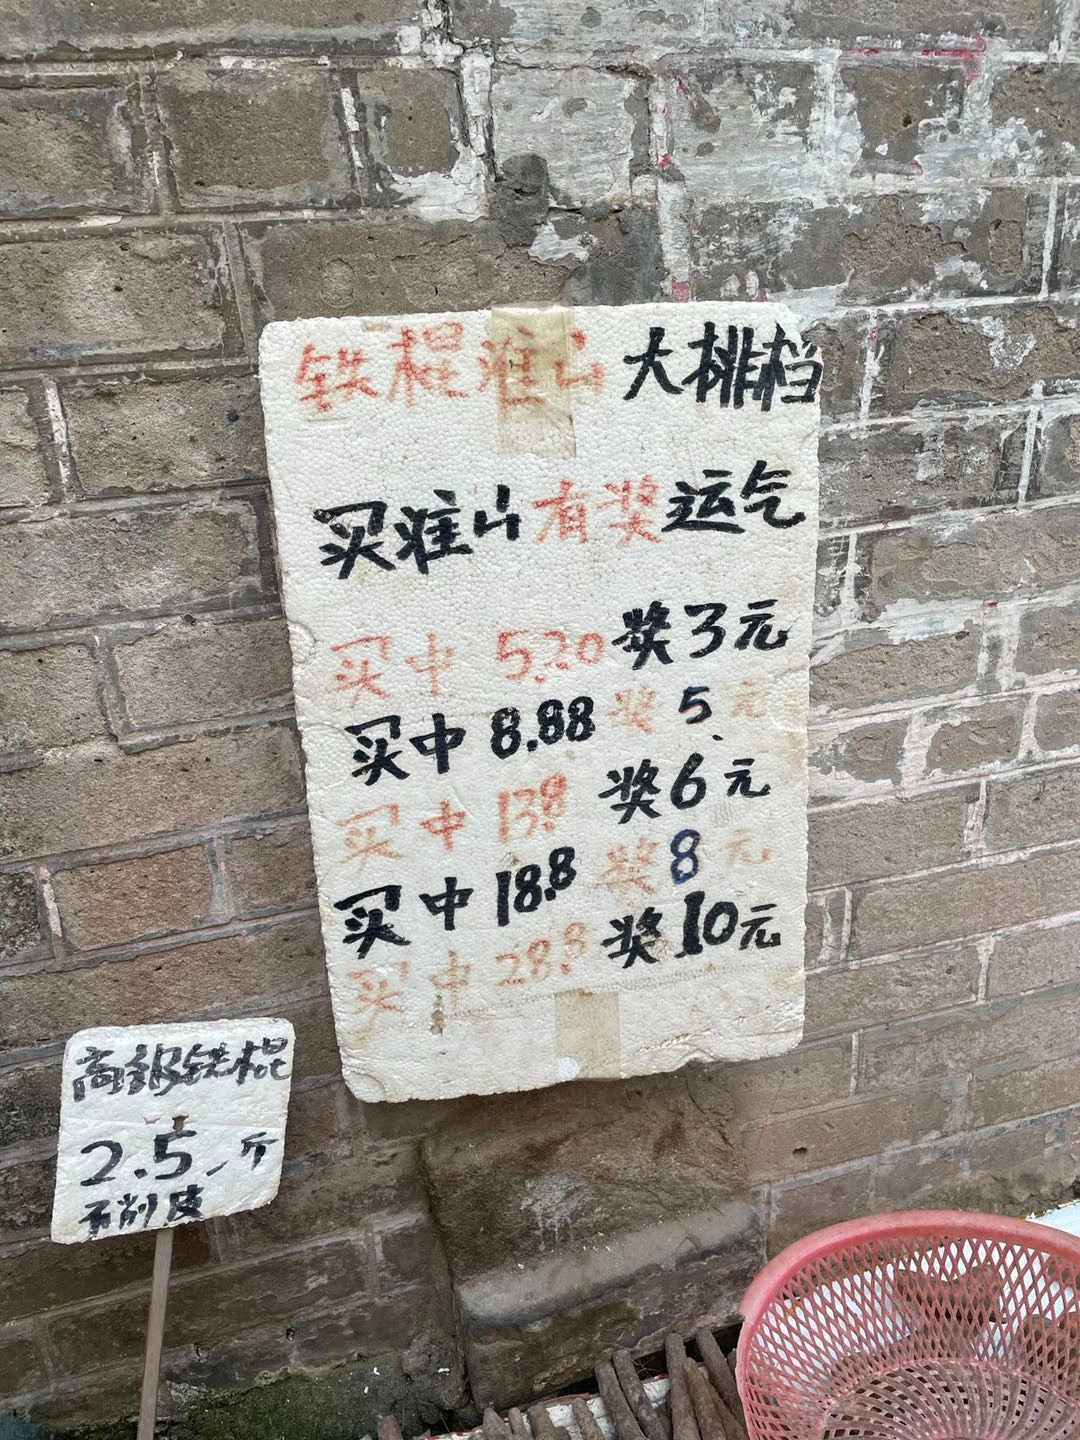 铁棍淮山 大排档
买淮山有奖运气
买中 5.20 奖3元
买中 8.88 奖5元
买中 13.8 奖6元
买中 18.8 奖8元
买中 28.8 奖10元
高级铁棍
2.5一斤
不削皮